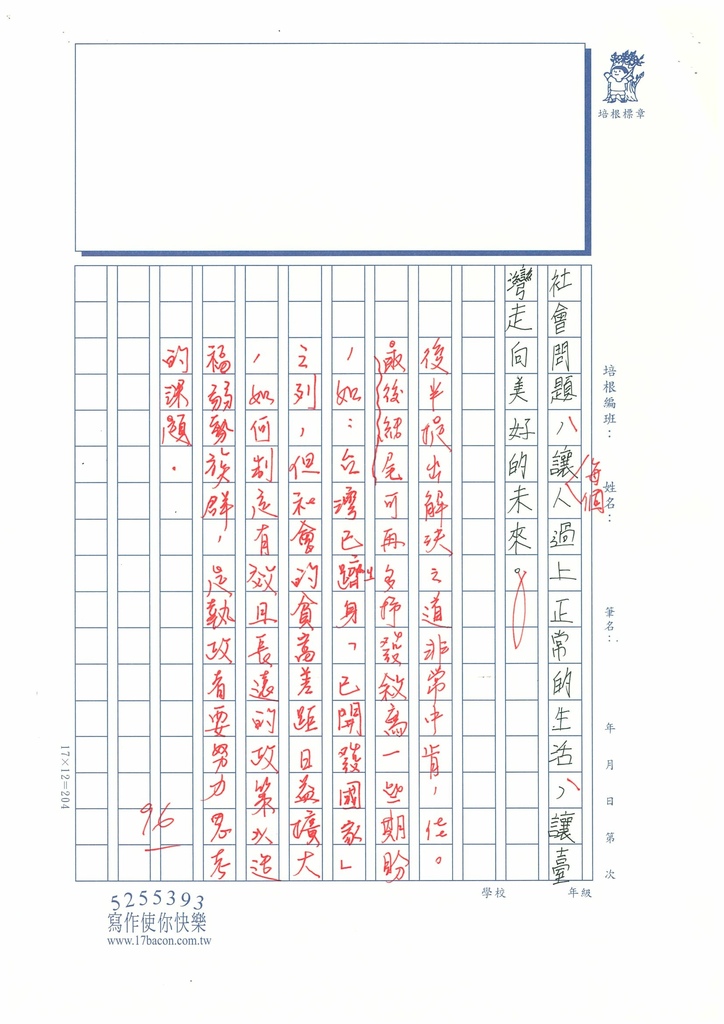 培根標章
培根編班：
姓名：
筆名：
年 月 日 第 次
年級
學校
社會問題，讓每個人過上正常的生活，讓臺
灣走向美好的未來。
後半提出解決之道非常中肯，佳。
最後結尾可再多抒發敘寫一些期盼
，如：台灣已躋身「已開發國家」
之列，但社會的貧富差距日益擴大
，如何制定有效且長遠的政策以造
福弱勢族群，是執政者要努力思考
的課題。
96
17×12=204
5255393
寫作使你快樂
www.17bacon.com.tw